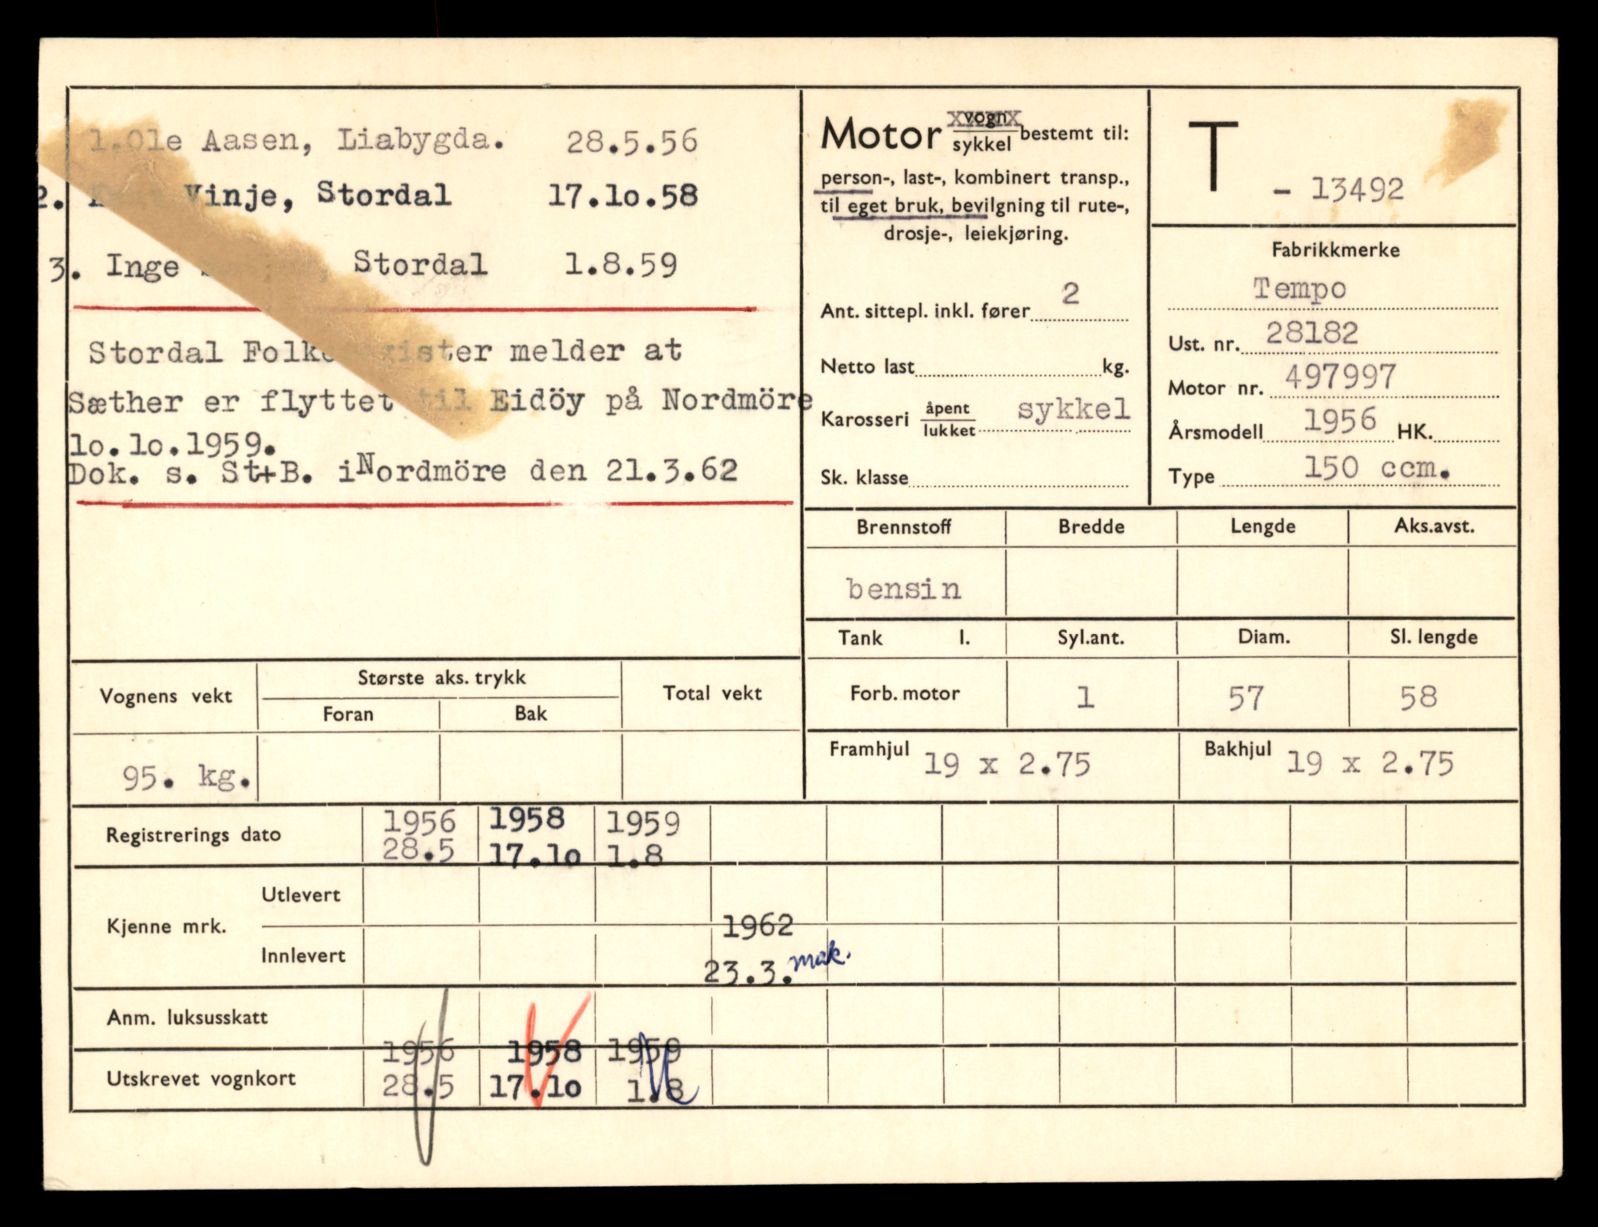 1.Ole Aasen, Liabygda. 28.5.56
2. Vinje, Stordal 17.lo.58
3. Inge Stordal 1.8.59
Stordal Folkeregister melder at
Sæther er flyttet til Eidöy på Nordmöre
lo.lo.1959.
Dok. s. St+B. iNordmöre den 21.3.62
Motor vogn sykkel bestemt til:
person-, last-, kombinert transp.,
til eget bruk, bevilgning til rute-,
drosje-, leiekjøring.
Ant. sittepl. inkl. fører 2
Netto last kg.
Karosseri åpent lukket sykkel
Sk. klasse
T - 13492
Fabrikkmerke
Tempo
Ust. nr. 28182
Motor nr. 497997
Årsmodell 1956 HK.
Type 150 ccm.
Brennstoff Bredde Lengde Aks.avst.
bensin
Tank l. Syl.ant. Diam. Sl. lengde
Forb. motor 1 57 58
Framhjul 19 x 2.75 Bakhjul 19 x 2.75
Vognens vekt Største aks. trykk Total vekt
Foran Bak
95. kg.
Registrerings dato 1956 1958 1959
28.5 17.lo 1.8
Kjenne mrk. Utlevert
1962
Innlevert 23.3. mak.
Anm. luksusskatt
1956 1958 1959
Utskrevet vognkort 28.5 17.lo 1.8